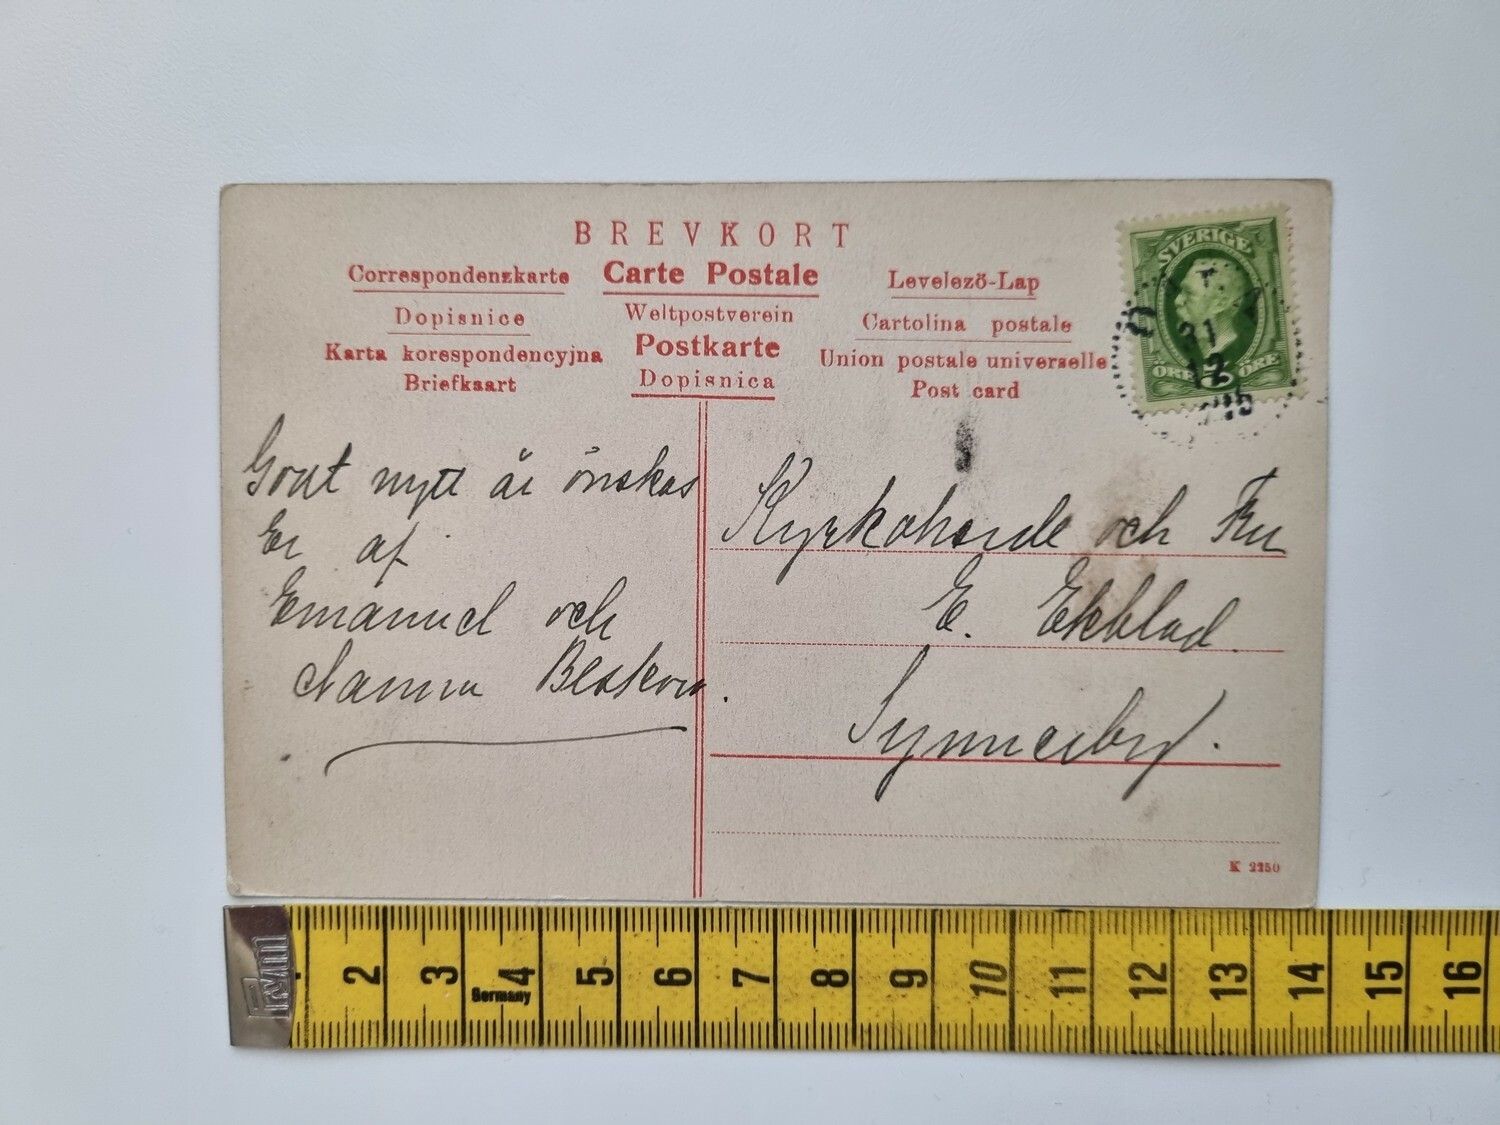 BREVKORT
Correspondenzkarte
Carte Postale
Levelező-Lap
Dopisnice
Weltpostverein
Cartolina postale
Karta korespondencyjna
Postkarte
Union postale universelle
Briefkaart
Dopisnica
Post card
SVERIGE
ÖRE 5 ÖRE
31
12
Godt nytt år önskas
Er af
Emanuel och
Nanna Beskow.
Kyrkoherde och Fru
E. Ekblad.
Synnerby.
K 2250
2 3 4 5 6 7 8 9 10 11 12 13 14 15 16
Germany